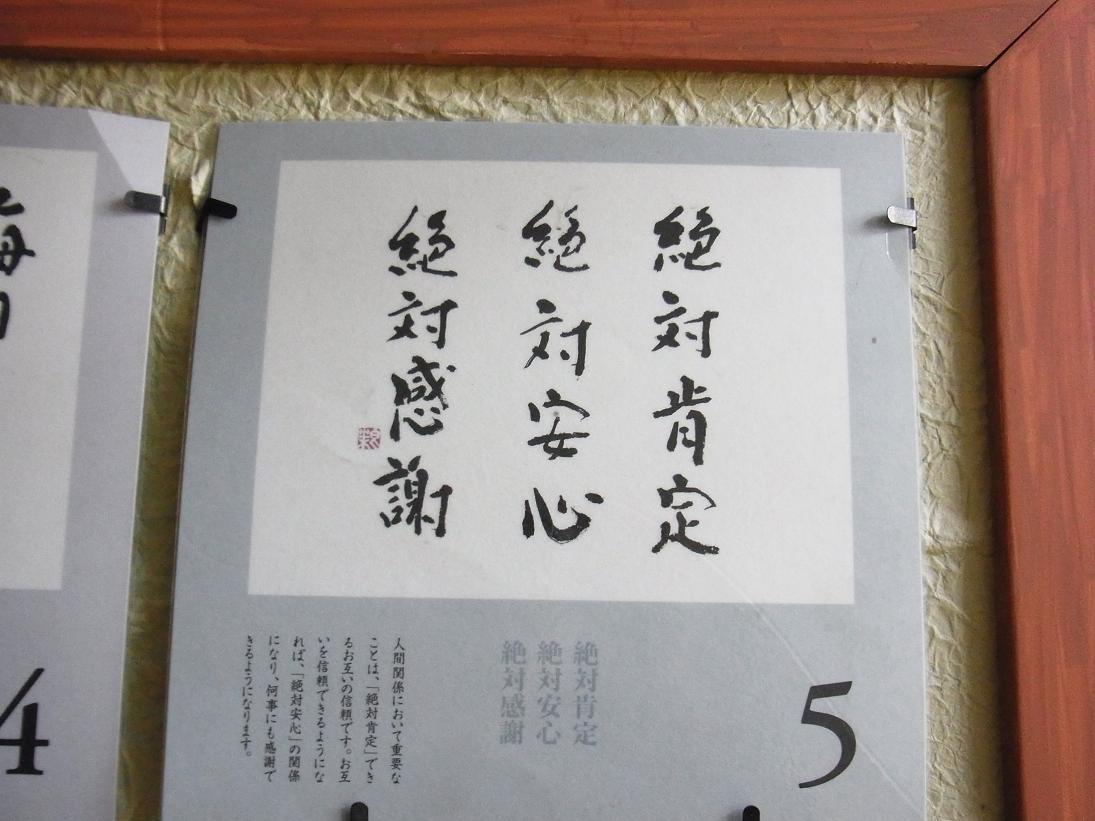 絶対肯定
絶対安心
絶対感謝
5
絶対肯定
絶対安心
絶対感謝
人間関係において重要な
ことは、「絶対肯定」でき
るお互いの信頼です。お互
いを信頼できるようにな
れば、「絶対安心」の関係
になり、何事にも感謝で
きるようになります。
4